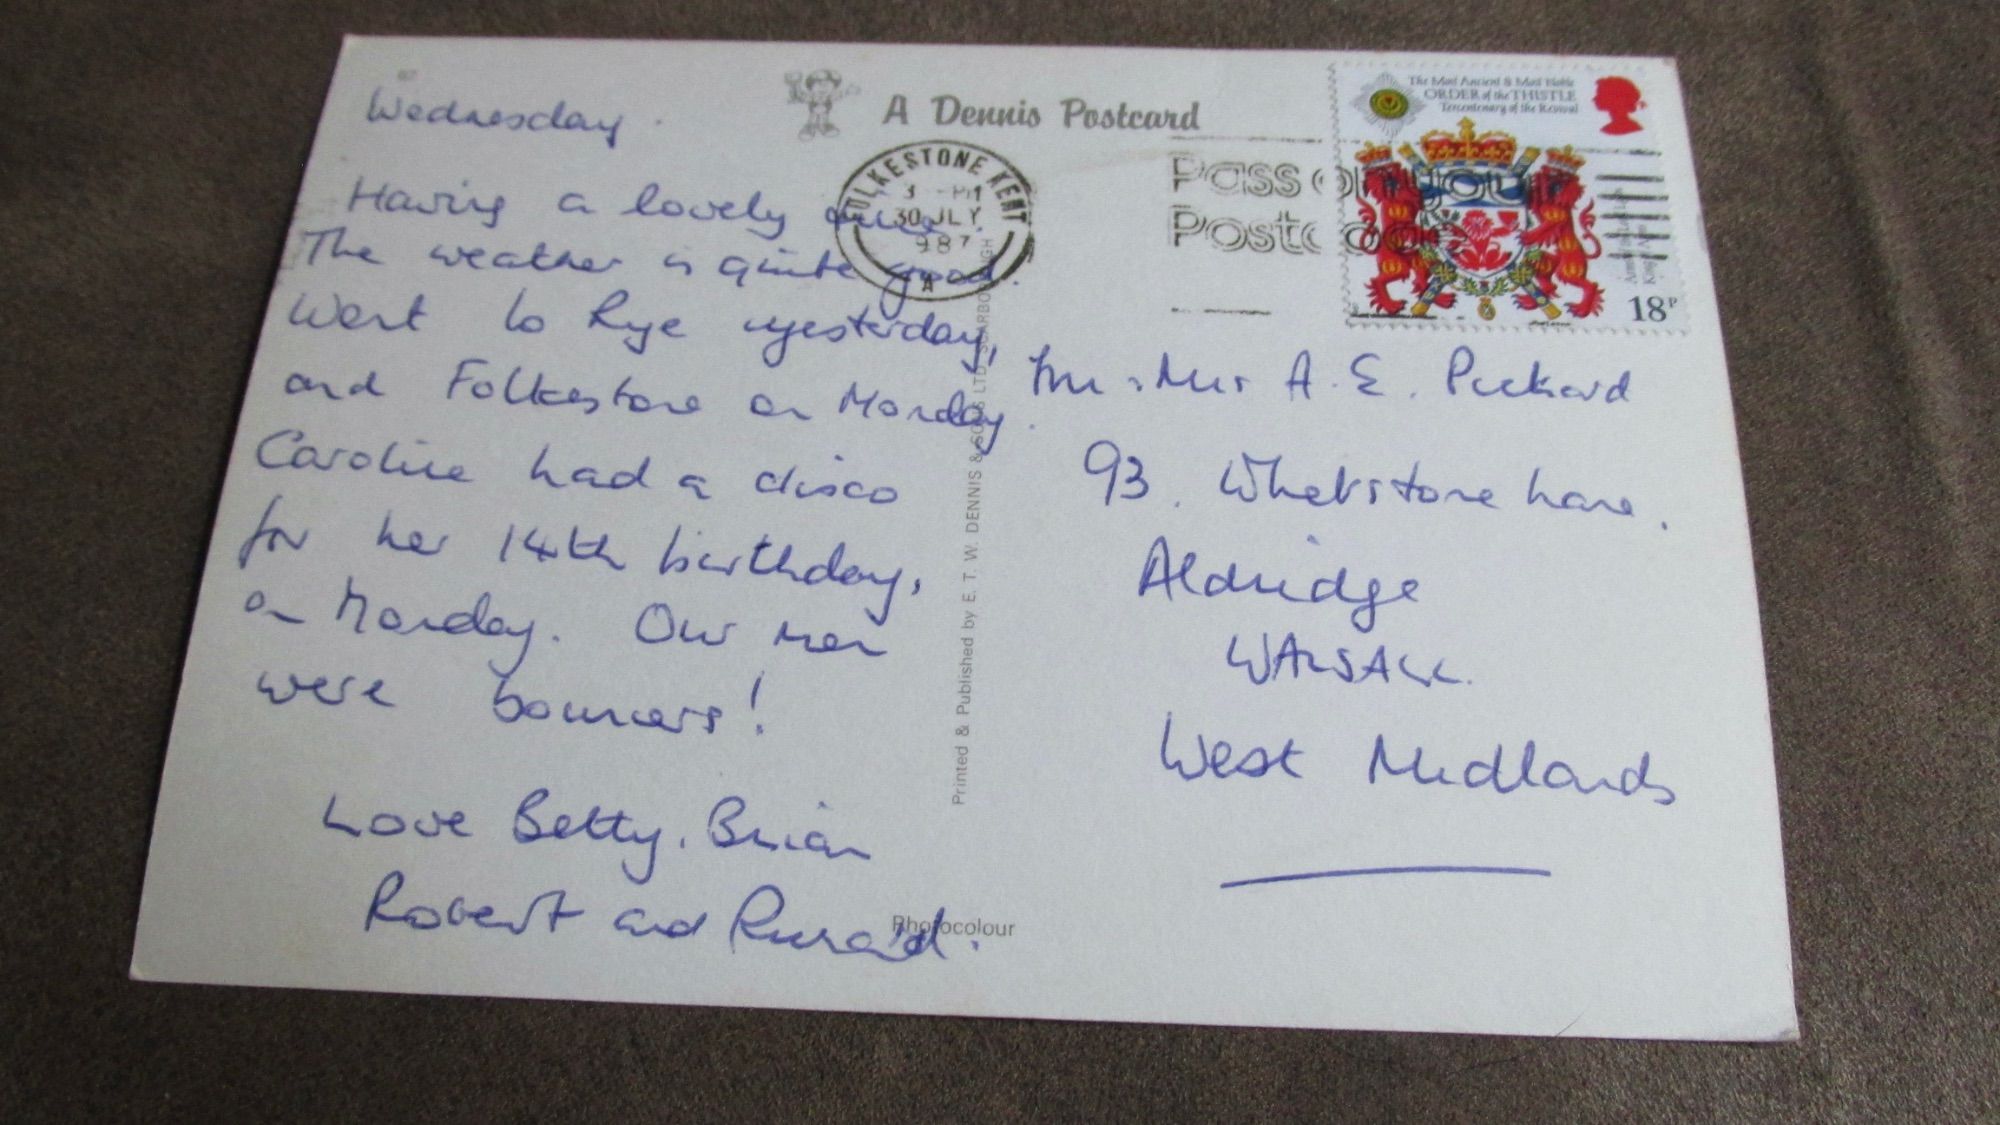 Wednesday.
Having a lovely time.
The weather is quite good.
Went to Rye yesterday,
and Folkestone on Monday.
Caroline had a disco
for her 14th birthday,
on Monday. Our men
were bouncers!
Love Betty, Brian
Robert and
A Dennis Postcard
FOLKESTONE KENT
30 JLY
1987
A
Pass on your
Postcode
The Most Ancient & Most Noble
ORDER of the THISTLE
Tercentenary of the Revival
18P
Printed & Published by E. T. W. DENNIS & SONS LTD., SCARBOROUGH
Mr & Mrs A. E. Pickard
93. Whetstone Lane.
Aldridge
WALSALL.
West Midlands
Photocolour